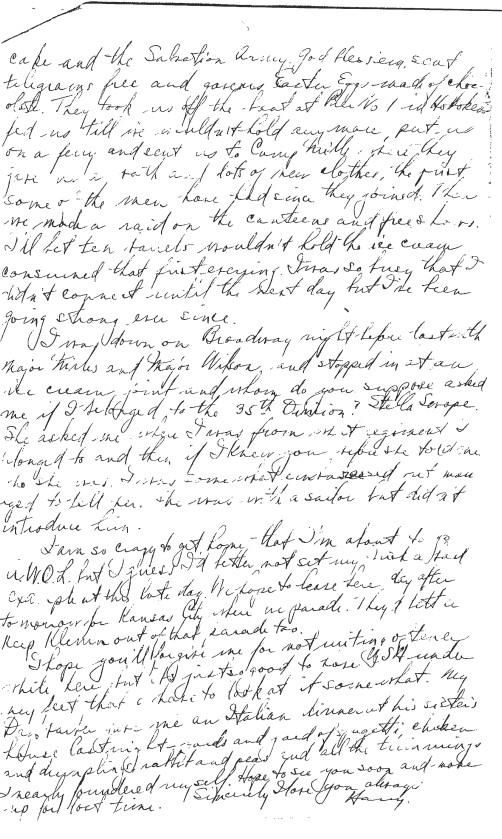 cake and the Salvation Army, God bless'em, sent
telegrams free and gave us Easter Eggs made of choc-
olate. They took us off the boat at Pier No 1 in Hoboken
fed us till we wouldn't hold any more, put us
on a ferry and sent us to Camp Mills where they
gave us a bath and lots of new clothes, the first
some of the men have had since they joined. Then
we made a raid on the canteens and free shows.
I'll bet ten barrels wouldn't hold the ice cream
consumed that first evening. I was so busy that I
didn't connect until the next day but I've been
going strong ever since.
I was down on Broadway night before last with
Major Miles and Major Wilson, and stopped in at an
ice cream joint and whom do you suppose asked
me if I belonged to the 35th Division? Stella Swope.
She asked me where I was from what regiment I
belonged to and then if I knew you before she told me
who she was. I was somewhat embarrassed but man
aged to tell her. She was with a sailor but didn't
introduce him.
I am so crazy to get home that I'm about to go
A.W.O.L. but I guess I'd better not set my a bad
example at this late day. We hope to leave here day after
tomorrow for Kansas City where we parade. They'd better
keep Klemm out of that parade too.
I hope you'll forgive me for not writing oftener
while here but it's just so good to have USA under
my feet that I have to look at it somewhat. My
me an Italian dinner at his sister's
house last night yards and yards of spaghetti, chicken
and dumplings rabbit and peas and all the trimmings
I nearly foundered myself. Hope to see you soon and make
up for lost time. Sincerely I love you always
Harry.